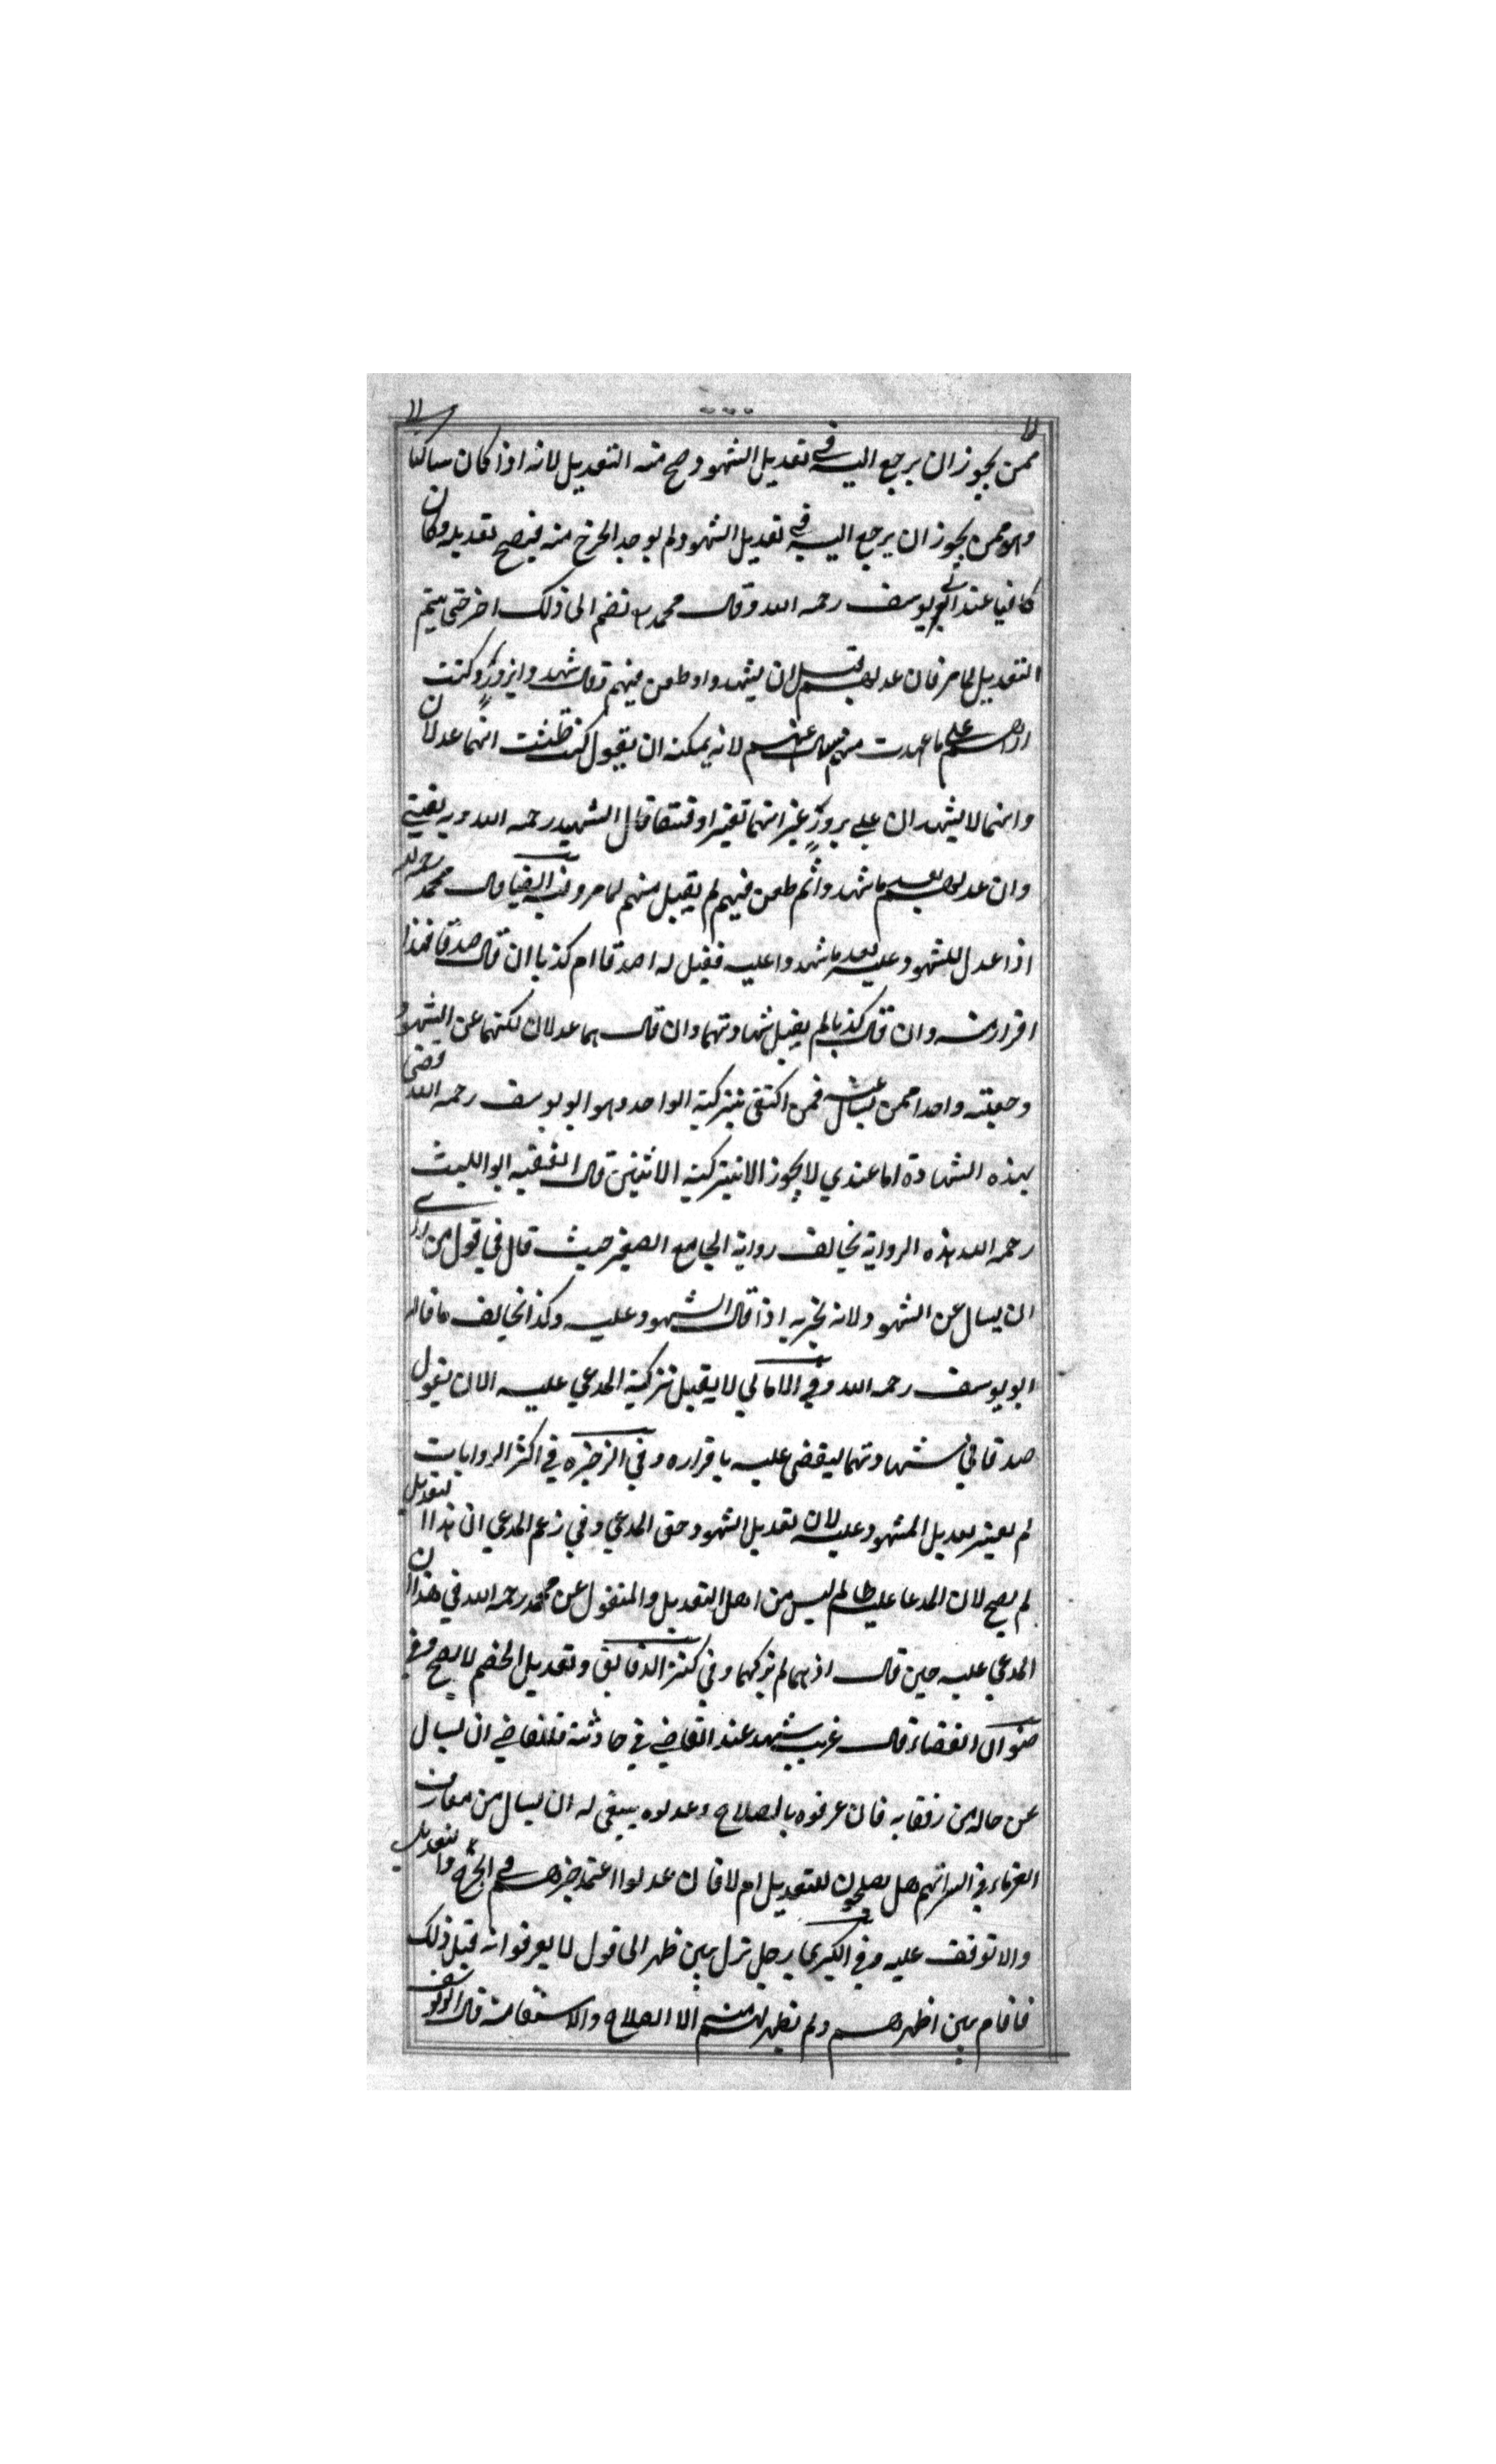 ممن يجوز ان يرجع اليه في تعديل الشهود صح منه التعديل لانه اذا كان ساكتا
وهو ممن يجوز ان يرجع اليه في تعديل الشهود ولم يوجد الجرح منه فيصح تعديله وكان
كافيا عند ابي يوسف رحمه الله وقال محمد نضم الى ذلك اخر حتى يتم
التعديل لما مر فان عدلهم قبل ان يشهدوا وطعن فيهم وقال شهدوا بزور وكنت
اراهم على ما عهدت منهم عنهم لانه يمكنه ان يقول كنت ظننت انهما عدلان
وانهما لا يشهدان على بزور غير انهما تغيرا وفسقا قال الشهيد رحمه الله وبه يفتي
وان عدلهم بعد ما شهدوا ثم طعن فيهم لم يقبل منهم لما مر وفي قال محمد رحمه الله
اذا عدل المشهود عليه بعد ما شهدوا عليه فقيل له اصدقا ام كذبا ان قال صدقا فهذا
اقرار منه وان قال كذبا لم يقبل شهادتهما وان قال هما عدلان لكنهما عن الشهود
وجعلته واحدا ممن يسال عنه فمن اكتفى بتزكية الواحد وهو ابو يوسف رحمه الله قضى
بهذه الشهادة اما عندي لا يجوز الا بتزكية الاثنين قال الفقيه ابو الليث
رحمه الله هذه الرواية يخالف رواية الجامع الصغير حيث قال في قول من راى
ان يسال عن الشهود لانه يخبر به اذا قال المشهود عليه وكذا يخالف ما قاله
ابو يوسف رحمه الله وفي الامالي لا يقبل تزكية المدعي عليه الا ان يقول
صدقا في شهادتهما ليقضى عليه باقراره وفي الذخيره في اكثر الروايات
لم يعتبر تعديل المشهود عليه لان تعديل الشهود حق المدعي وفي زعم المدعي ان هذا التعديل
لم يصح لان المدعا عليه ظالم ليس من اهل التعديل والمنقول عن محمد رحمه الله في هذا ان
المدعي عليه حين قال انهما لم يزكهما وفي كنز الدقايق وتعديل الخصم لا يصح وفي
صنوان القضاء قال غريب شهد عند القاضي في حادثة فللقاضي ان يسال
عن حاله من رفقايه فان عرفوه بالصلاح وعدلوه ينبغى له ان يسال من معارف
الغرباء في السر انهم هل يصلحون للتعديل ام لا فان عدلوا اعتمد خبرهم في الجرح والتعديل
والا توقف عليه وفي الكبرى رجل نزل بين ظهر الى قول لا يعرفوا انه قبل ذلك
فاقام بين اظهرهم ولم يظهر لهم منه الا الصلاح والاستقامة قال ابو يوسف